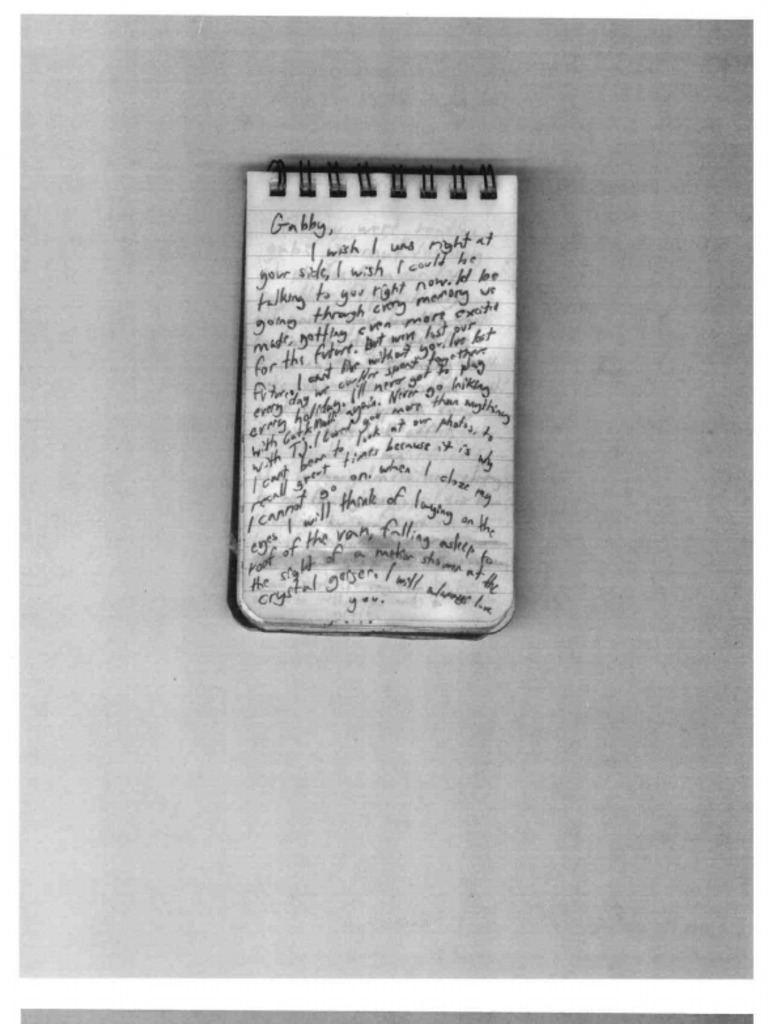 Gabby,
I wish I was right at
your side, I wish I could be
talking to you right now. Id be
going through every memory we
made, getting even more excited
for the future. But weve lost our
future. I cant live without you. Ive lost
every day we couldve spent together.
every holiday. I'll never get to play
with again. Never go hiking
with TJ. I loved you more than anything
I cant bear to look at our photos, to
recall great times because it is why
I cannot go on. when I close my
eyes I will think of laying on the
roof of the van, falling asleep to
the sight of a meteor at the
crystal geiser. I will always love
you.